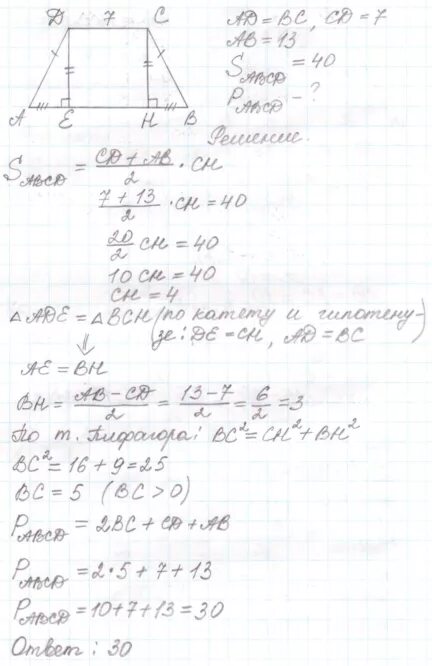 D 7 C
A E H B
AD = BC, CD = 7
AB = 13
S_ABCD = 40
P_ABCD - ?
Решение.
S_ABCD = (CD + AB)/2 · CH
(7 + 13)/2 · CH = 40
20/2 CH = 40
10 CH = 40
CH = 4
△ADE = △BCH (по катету и гипотену-
зе: DE = CH, AD = BC)
⇓
AE = BH
BH = (AB - CD)/2 = (13 - 7)/2 = 6/2 = 3
По т. Пифагора: BC² = CH² + BH²
BC² = 16 + 9 = 25
BC = 5 (BC > 0)
P_ABCD = 2BC + CD + AB
P_ABCD = 2·5 + 7 + 13
P_ABCD = 10 + 7 + 13 = 30
Ответ: 30